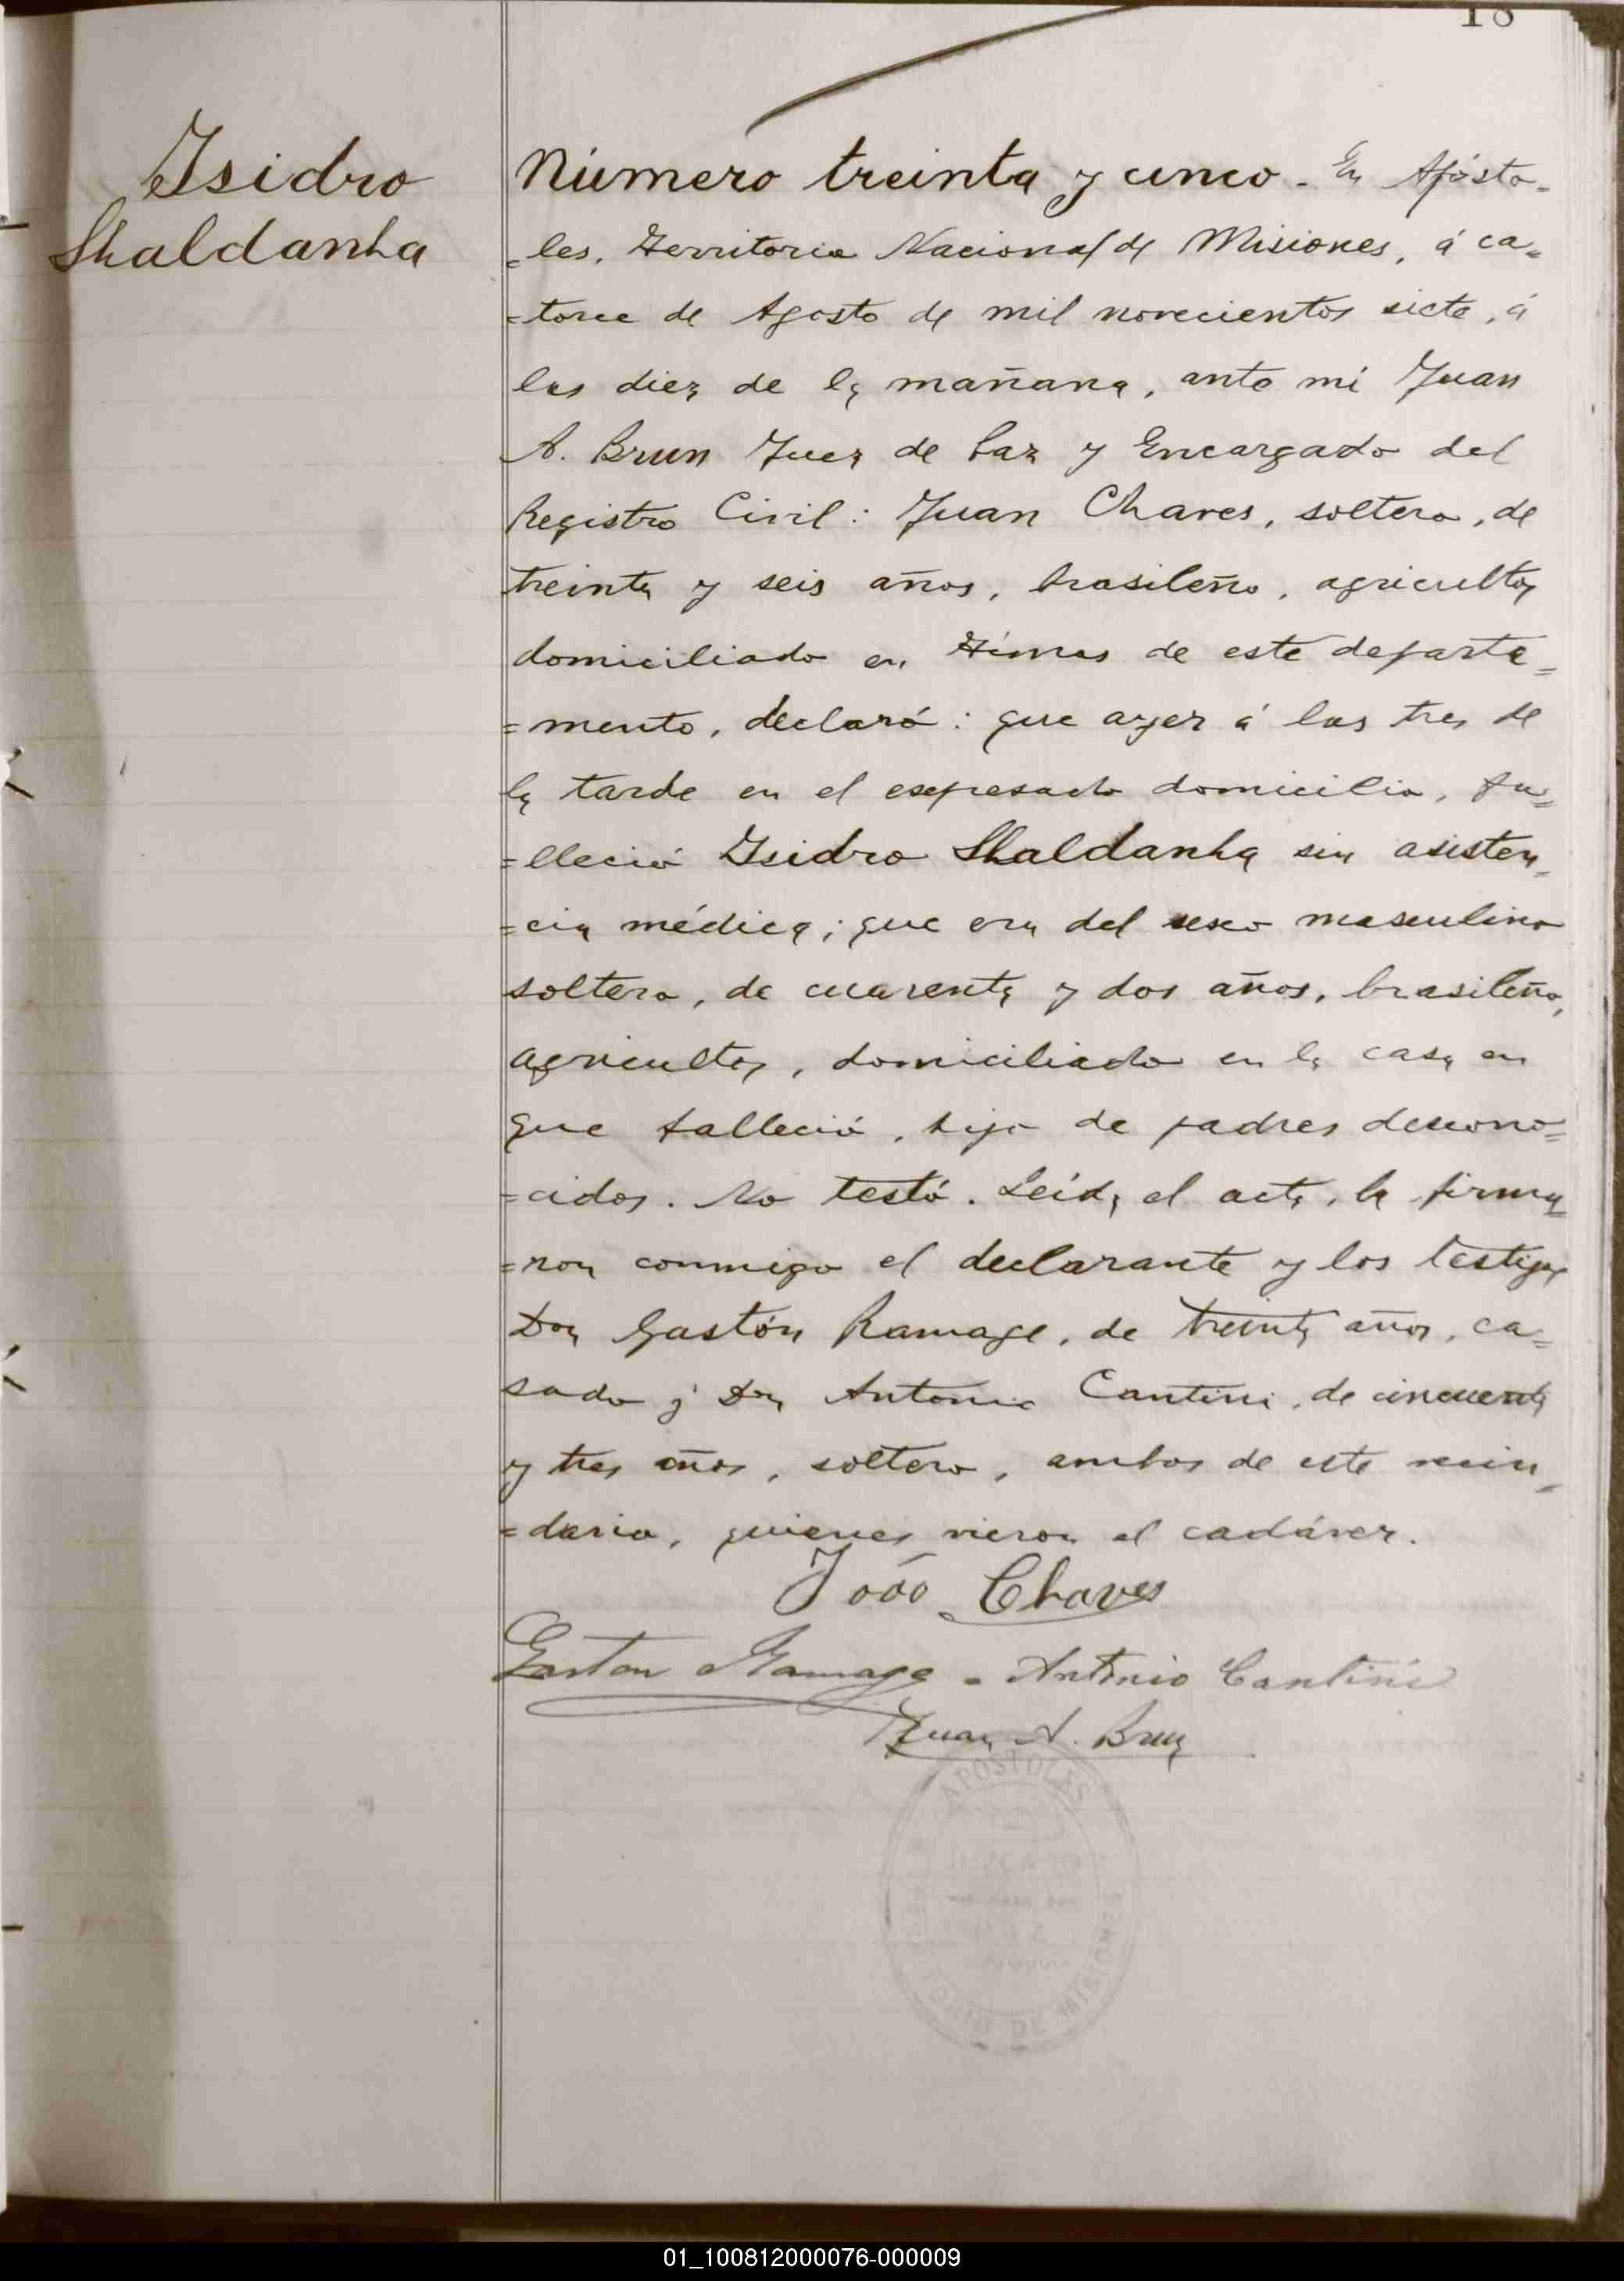 18
Isidro
Shaldanha
Número treinta y cinco. En Apósto-
=les, Territorio Nacional de Misiones, á ca=
=torce de Agosto de mil novecientos siete, á
las diez de la mañana, ante mí Juan
A. Brun Juez de Paz y Encargado del
Registro Civil: Juan Chaves, soltero, de
treinta y seis años, brasileño, agricultor
domiciliado en de este departa=
=mento, declaró: que ayer á las tres de
la tarde en el espresado domicilio, fa=
=lleció Isidro Shaldanha sin asisten=
=cia médica; que era del sexo masculino
soltero, de cuarenta y dos años, brasileño,
agricultor, domiciliado en la casa en
que falleció, hijo de padres descono=
=cidos. No testó. Leída el acta, la firma=
=ron conmigo el declarante y los testigos
Don Gastón Ramage, de treinta años, ca=
sado y Don Antonio Cantini, de cincuenta
y tres años, soltero, ambos de este vecin=
=dario, quienes vieron el cadáver.
João Chaves
Gaston Ramage - Antonio Cantini
Juan A. Brun
APOSTOLES
DE MISIONES
01_100812000076-000009